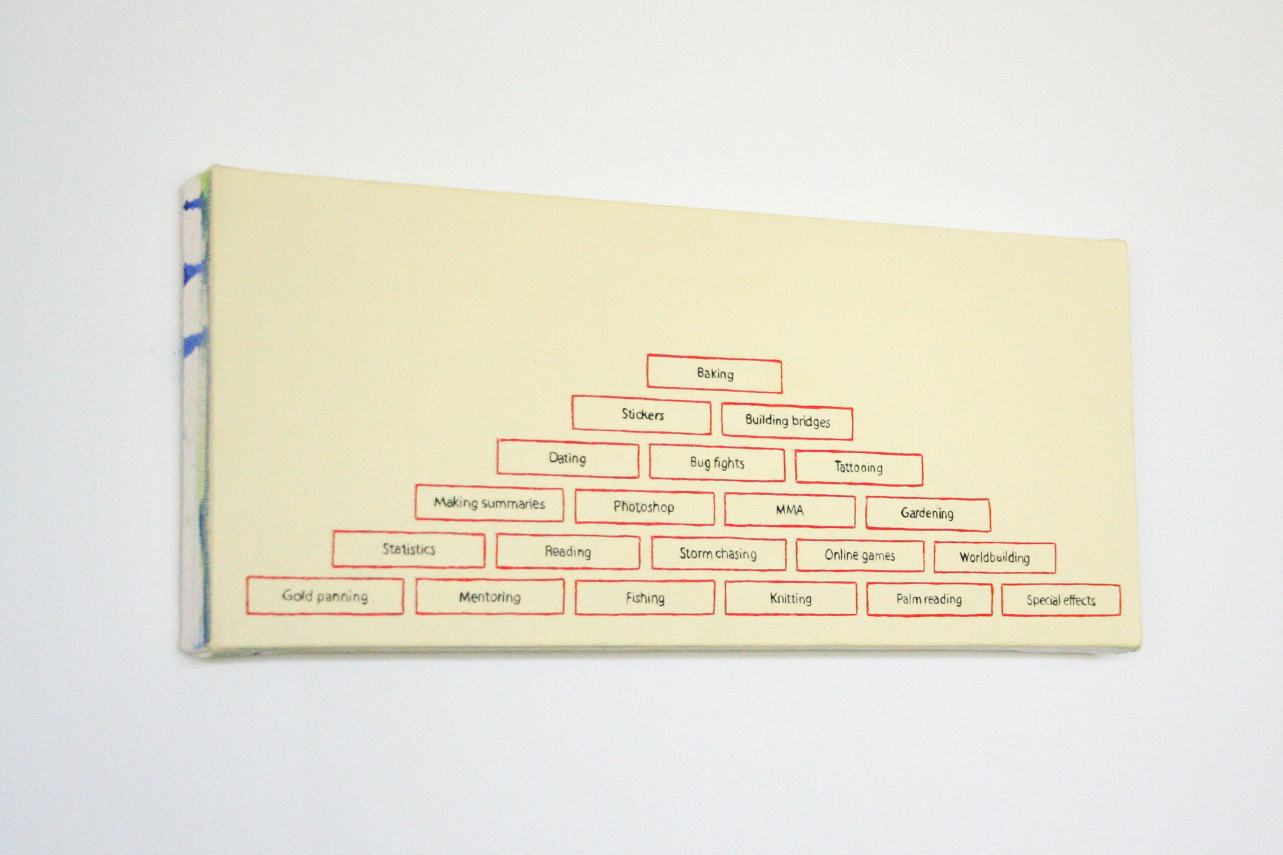 Baking
Stickers Building bridges
Dating Bug fights Tattooing
Making summaries Photoshop MMA Gardening
Statistics Reading Storm chasing Online games Worldbuilding
Gold panning Mentoring Fishing Knitting Palm reading Special effects